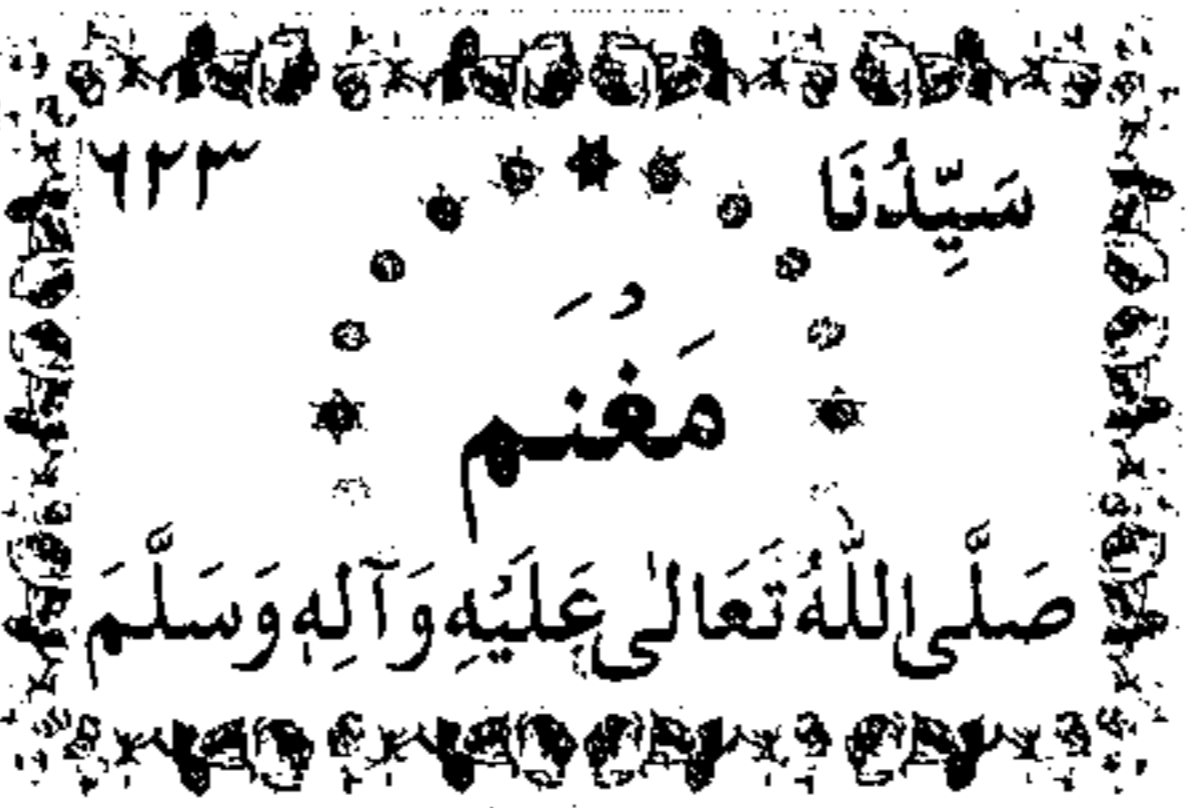 سَيِّدُنَا ٦٢٣
مَغْنَم
صَلَّى اللّٰهُ تَعَالٰى عَلَيْهِ وَآلِهٖ وَسَلَّمَ